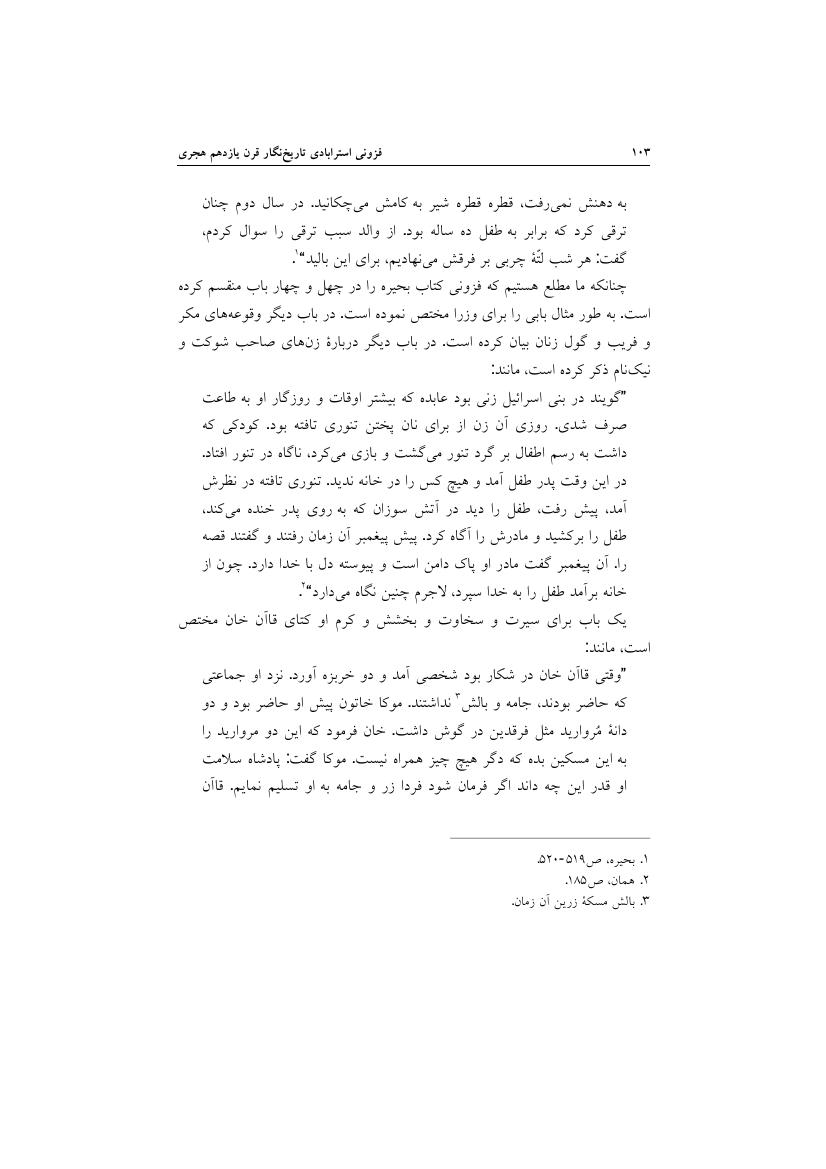 ۱۰۳ فزونی استرابادی تاریخ‌نگار قرن یازدهم هجری
به دهنش نمی‌رفت، قطره قطره شیر به کامش می‌چکانید. در سال دوم چنان
ترقی کرد که برابر به طفل ده ساله بود. از والد سبب ترقی را سوال کردم،
گفت: هر شب لتّهٔ چربی بر فرقش می‌نهادیم، برای این بالید“۱.
چنانکه ما مطلع هستیم که فزونی کتاب بحیره را در چهل و چهار باب منقسم کرده
است. به طور مثال بابی را برای وزرا مختص نموده است. در باب دیگر وقوعه‌های مکر
و فریب و گول زنان بیان کرده است. در باب دیگر دربارهٔ زن‌های صاحب شوکت و
نیک‌نام ذکر کرده است، مانند:
”گویند در بنی اسرائیل زنی بود عابده که بیشتر اوقات و روزگار او به طاعت
صرف شدی. روزی آن زن از برای نان پختن تنوری تافته بود. کودکی که
داشت به رسم اطفال بر گرد تنور می‌گشت و بازی می‌کرد، ناگاه در تنور افتاد.
در این وقت پدر طفل آمد و هیچ کس را در خانه ندید. تنوری تافته در نظرش
آمد، پیش رفت، طفل را دید در آتش سوزان که به روی پدر خنده می‌کند،
طفل را برکشید و مادرش را آگاه کرد. پیش پیغمبر آن زمان رفتند و گفتند قصه
را. آن پیغمبر گفت مادر او پاک دامن است و پیوسته دل با خدا دارد. چون از
خانه برآمد طفل را به خدا سپرد، لاجرم چنین نگاه می‌دارد“۲.
یک باب برای سیرت و سخاوت و بخشش و کرم او کتای قاآن خان مختص
است، مانند:
”وقتی قاآن خان در شکار بود شخصی آمد و دو خربزه آورد. نزد او جماعتی
که حاضر بودند، جامه و بالش۳ نداشتند. موکا خاتون پیش او حاضر بود و دو
دانهٔ مُروارید مثل فرقدین در گوش داشت. خان فرمود که این دو مروارید را
به این مسکین بده که دگر هیچ چیز همراه نیست. موکا گفت: پادشاه سلامت
او قدر این چه داند اگر فرمان شود فردا زر و جامه به او تسلیم نمایم. قاآن
۱. بحیره، ص۵۱۹-۵۲۰.
۲. همان، ص۱۸۵.
۳. بالش مسکهٔ زرین آن زمان.